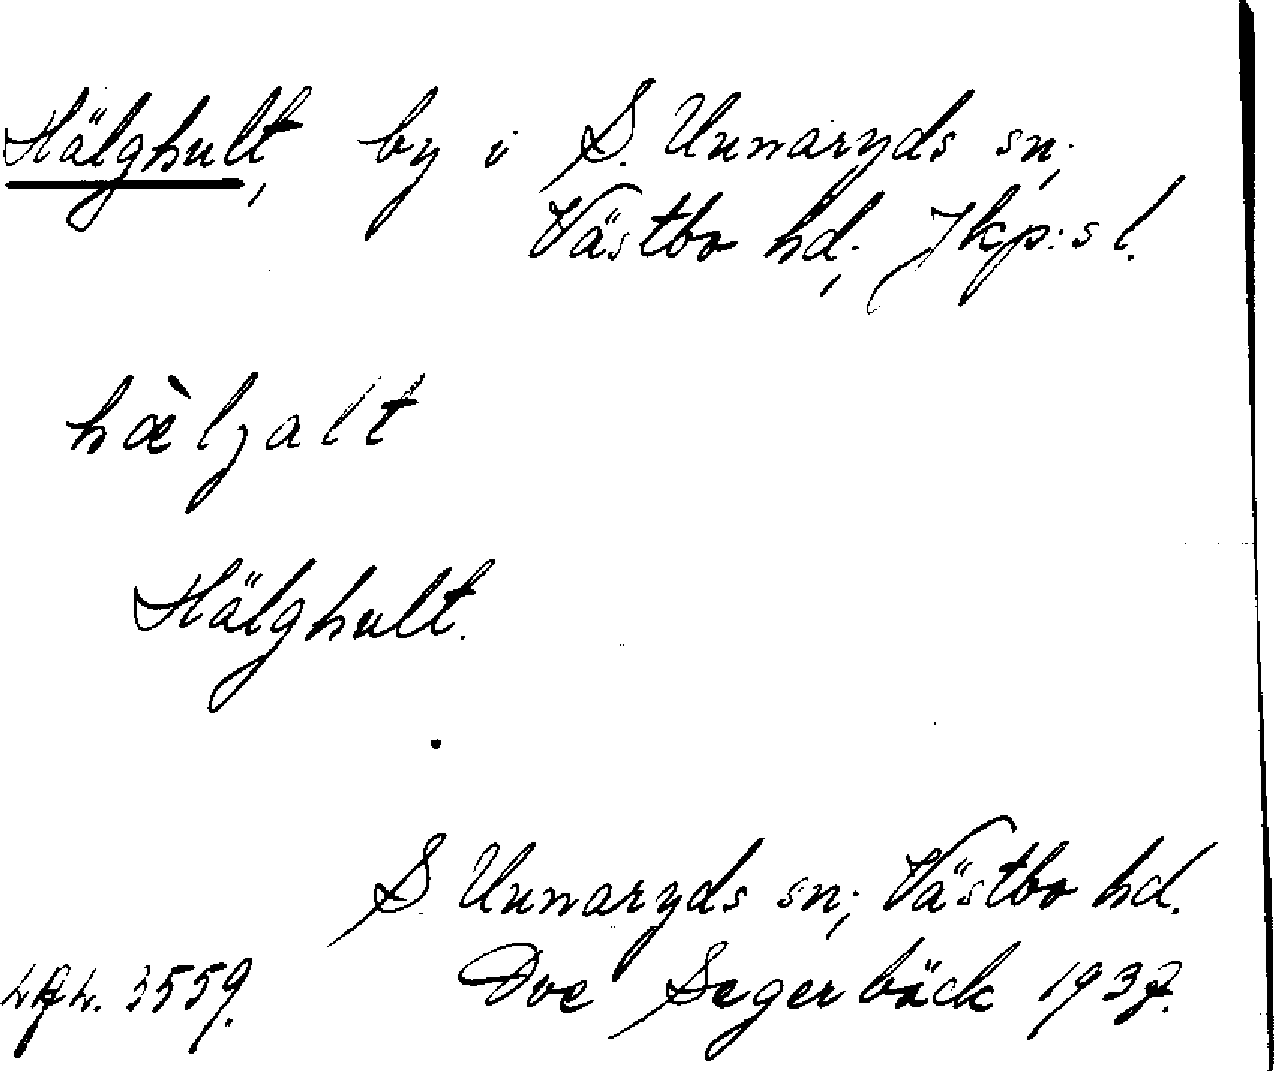 Hälghult, by i S. Unnaryds sn.,
Västbo hd., Jkp:s l.
hæ̀lȝalt
Hälghult.
S Unnaryds sn., Västbo hd.
3559. Segerbäck 1937.